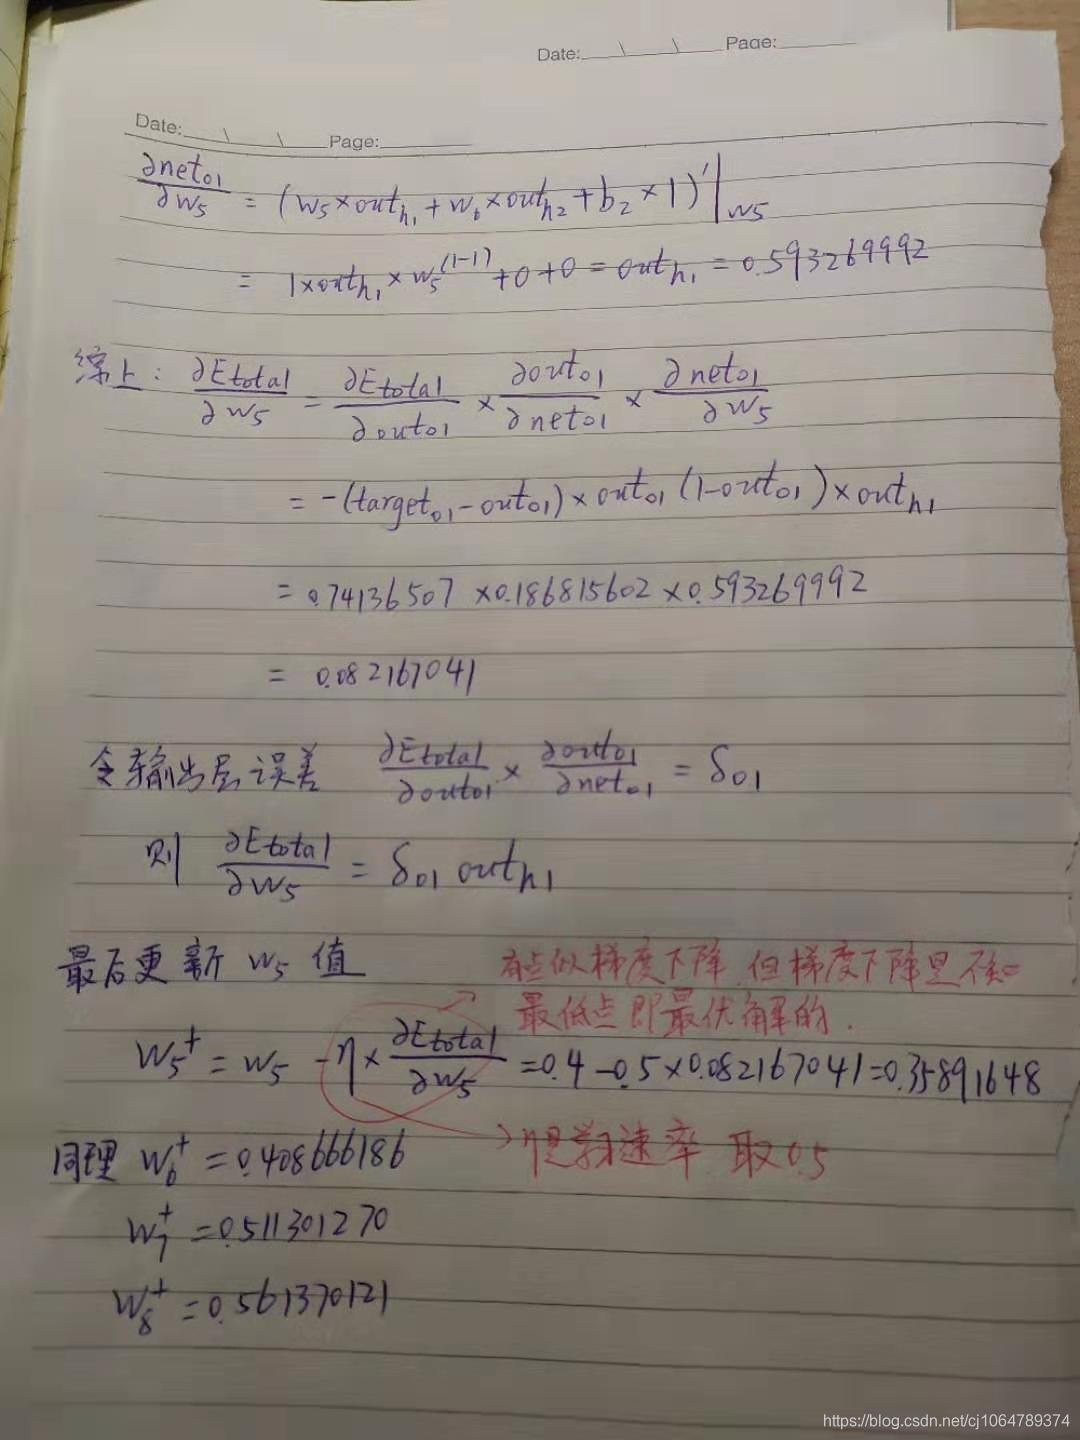 Date: \ \ Page:
Date: \ \ Page:
∂net₀₁/∂w₅ = (w₅×out_h₁+w₆×out_h₂+b₂×1)'|w₅
= 1×out_h₁×w₅^(1-1)+0+0=out_h₁=0.593269992
综上: ∂Etotal/∂w₅ = ∂Etotal/∂out₀₁ × ∂out₀₁/∂net₀₁ × ∂net₀₁/∂w₅
= -(target₀₁-out₀₁)×out₀₁(1-out₀₁)×out_h₁
= 0.74136507×0.186815602×0.593269992
= 0.082167041
令输出层误差 ∂Etotal/∂out₀₁ × ∂out₀₁/∂net₀₁ = δ₀₁
则 ∂Etotal/∂w₅ = δ₀₁ out_h₁
最后更新 w₅ 值
有点似梯度下降,但梯度下降是
最低点即最优解的.
w₅⁺ = w₅ -η× ∂Etotal/∂w₅ =0.4-0.5×0.082167041=0.35891648
同理 w₆⁺ =0.408666186
η是学习速率,取0.5
w₇⁺ =0.511301270
w₈⁺ =0.561370121
https://blog.csdn.net/cj1064789374